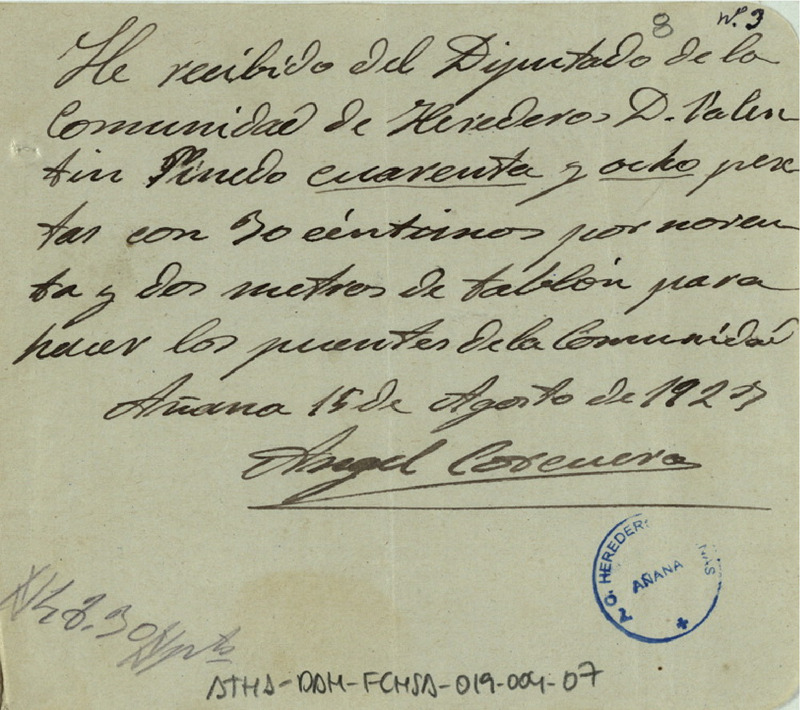 8 Nº 3
He recibido del Diputado de la
Comunidad de Herederos D. Valen
tin Pinedo cuarenta y ocho pese
tas con 30 céntimos por noven
ta y dos metros de tablón para
hacer los puentes de la Comunidad
Añana 15 de Agosto de 1923
Angel
HEREDER
AÑANA
48.30 pts
ATHA-DAH-FCHSA-019-004-07